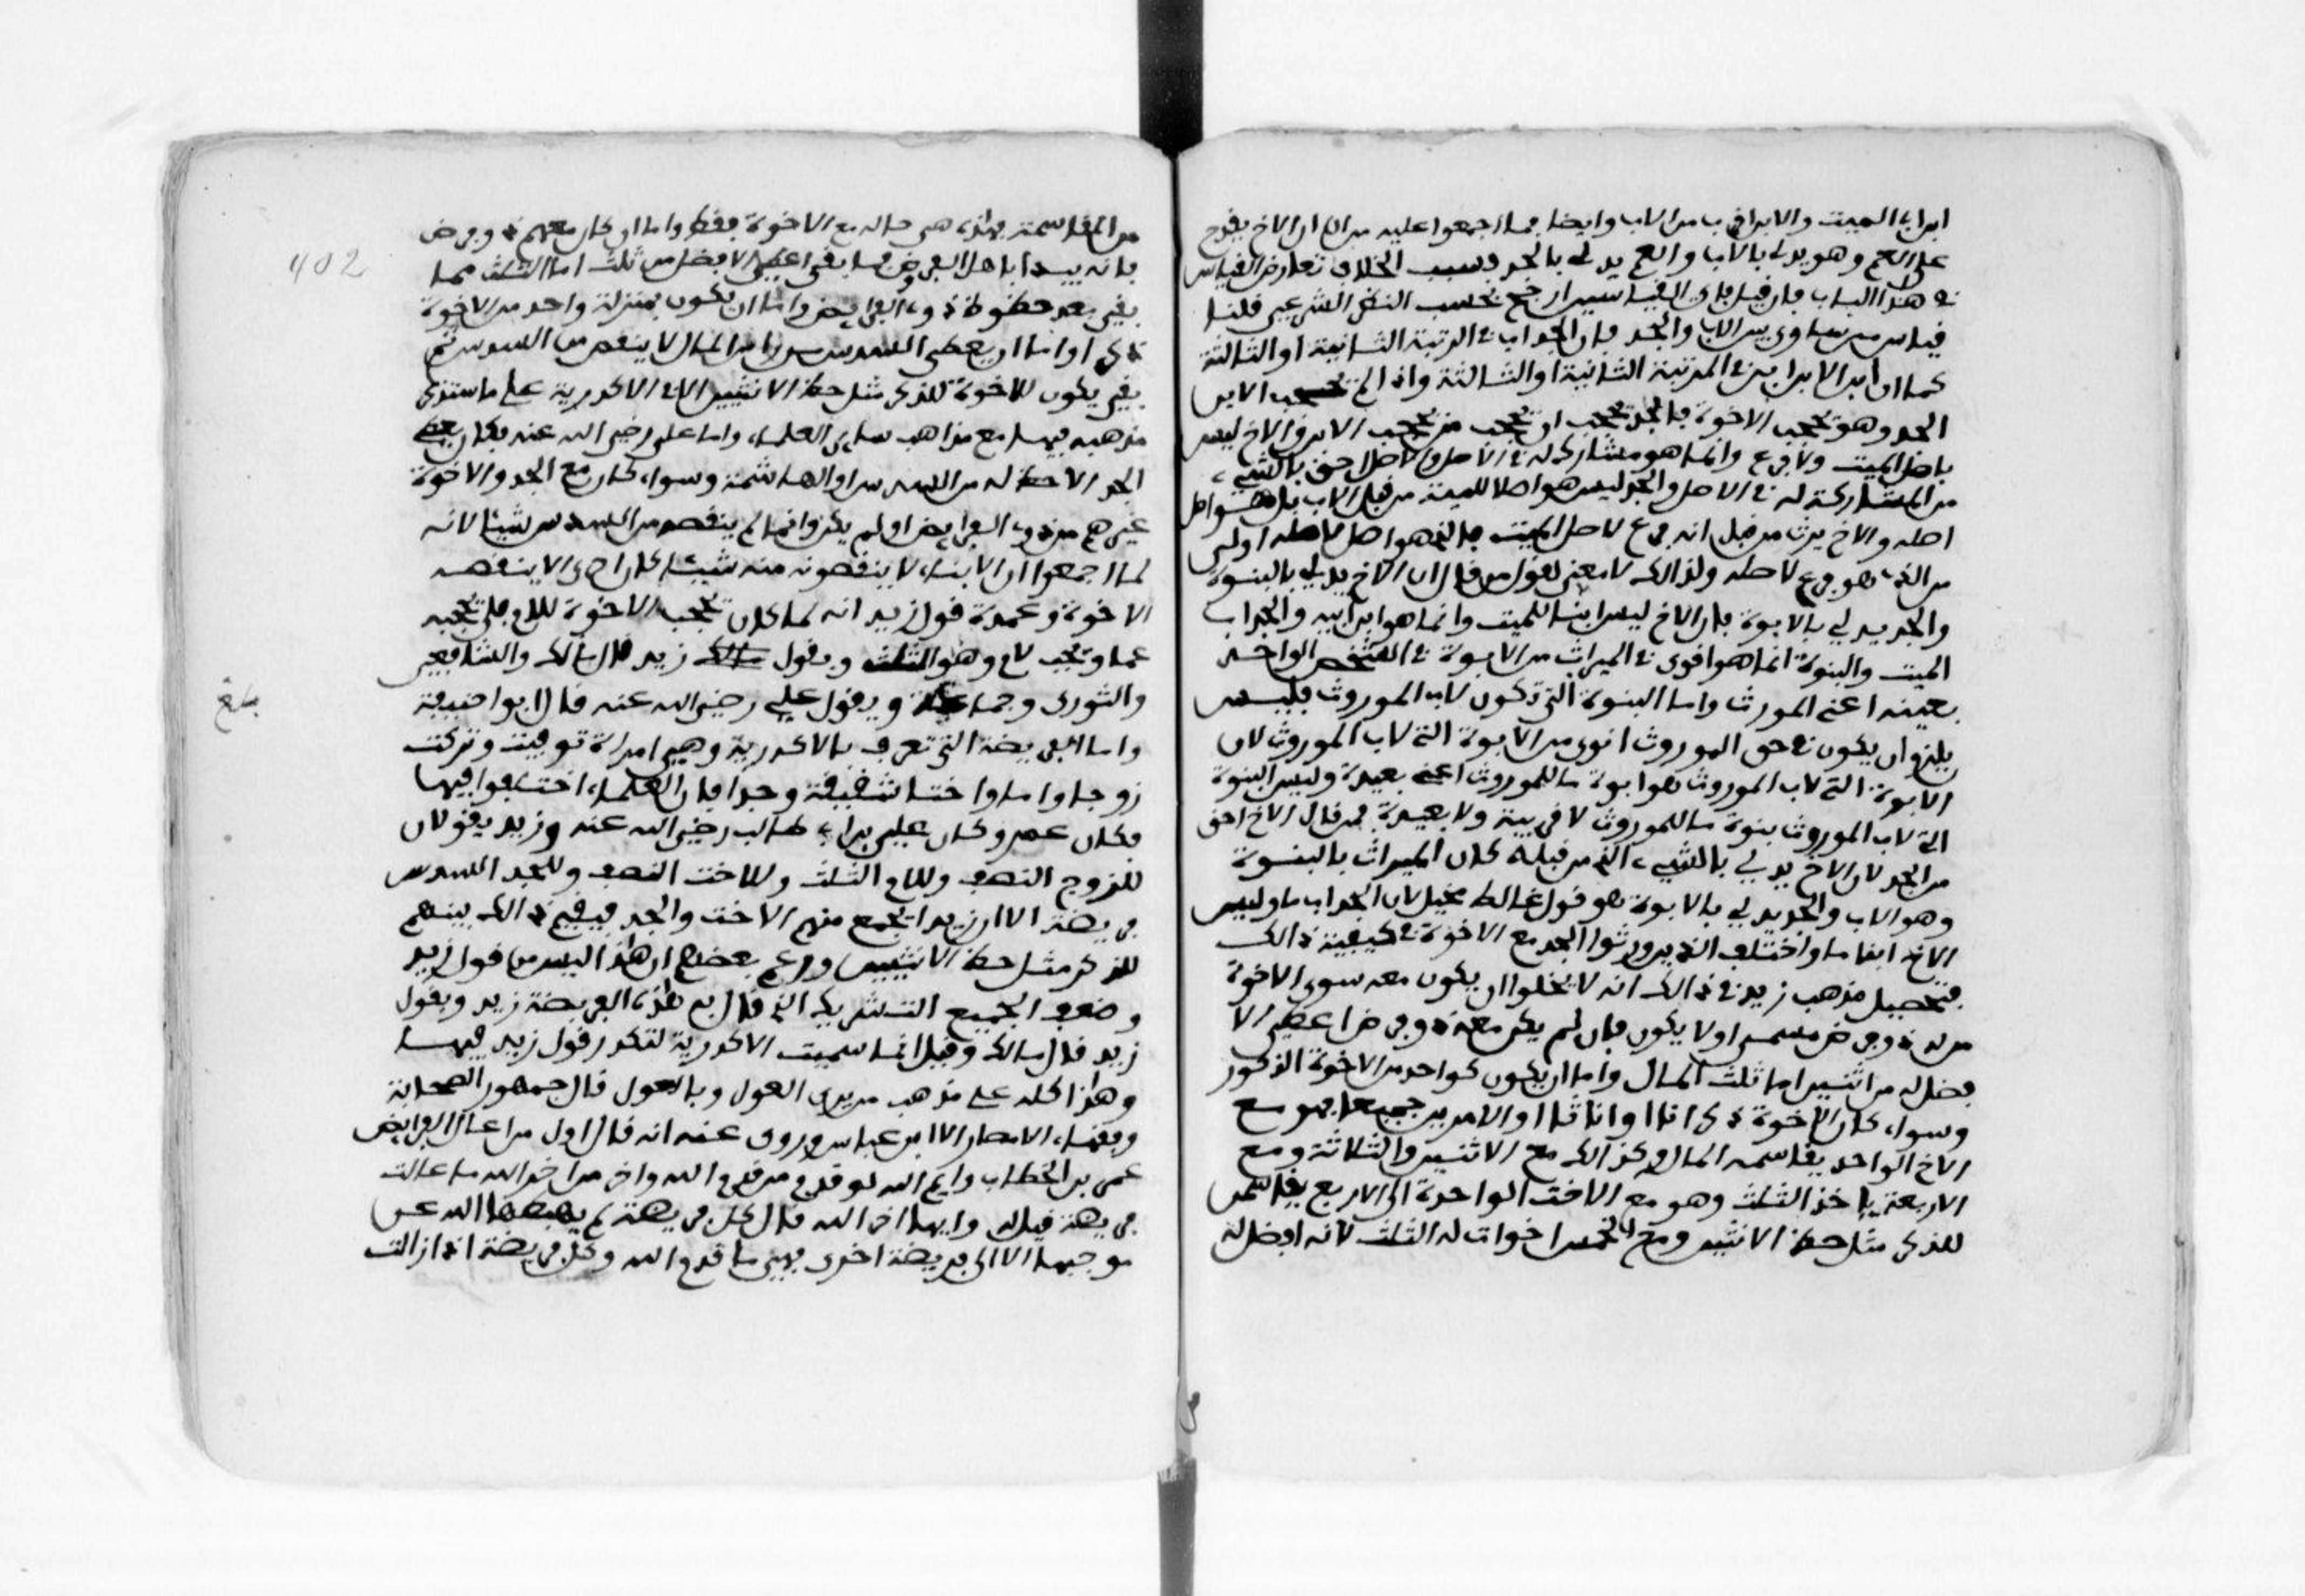 ابن اب الميت والابن اقرب من الاب وايضا فما اجمعوا عليه من ان ابن الاخ يقدم
على العم وهو يدلي بالاب والعم يدلي بالجد فسبب الخلاف تعارض القياس
في هذا الباب فان قيل فاي القياسين ارجح بحسب النظر الشرعي قلنا
قياس من ساوى بين الاب والجد فان الجد اب في الرتبة الثانية او الثالثة
كما ان ابن الابن ابن في المرتبة الثانية او الثالثة واذا لم يحجب الابن
الجد وهو يحجب الاخوة فالجد يجب ان يحجب من يحجب الابن والاخ ليس
باصل الميت ولا فرع وانما هو مشارك له في الاصل والاصل احق بالشيء
من المشارك له في الاصل والجد ليس هو اصلا للميت من قبل الاب بل هو اصل
اصله والاخ يرث من قبل انه فرع لاصل الميت فالذي هو اصل لاصله اولى
من الذي هو فرع لاصله ولذالك لا معنى لقول من قال ان الاخ يدلي بالبنوة
والجد يدلي بالابوة فان الاخ ليس ابنا للميت وانما هو ابن ابيه والجد اب
الميت والبنوة انما هو اقوى في الميراث من الابوة في الشخص الواحد
بعينه اعني المورث واما البنوة التي تكون لاب الموروث فليس
يلزم ان يكون في حق الموروث اقوى من الابوة التي لاب الموروث لان
الابوة التي لاب الموروث هو ابوة ما للموروث اعني بعيدة وليس البنوة
التي لاب الموروث بنوة ما للموروث لا قريبة ولا بعيدة فمن قال الاخ احق
من الجد لان الاخ يدلي بالشيء الذي من قبله كان الميراث بالبنوة
وهو الاب والجد يدلي بالابوة هو قول غالط مخيل لان الجد اب ما وليس
الاخ ابنا ما واختلف الذين ورثوا الجد مع الاخوة في كيفية ذالك
فتحصيل مذهب زيد في ذالك انه لا يخلوا ان يكون معه سوى الاخوة
من له ذو فرض مسمى او لا يكون فان لم يكن معه ذو فرض اعطي الا
فضل له من اثنين اما ثلث المال واما ان يكون كواحد من الاخوة الذكور
وسواء كان الاخوة ذكرانا او اناثا او الامرين جميعا فهو مع
الاخ الواحد يقاسمه المال وكذالك مع الاثنين والثلاثة ومع
الاربعة ياخذ الثلث وهو مع الاخت الواحدة الى الاربع يقاسمهن
للذكر مثل حظ الانثيين ومع الخمس اخوات له الثلث لانه افضل له
402
من المقاسمة فهذه هي حاله مع الاخوة فقط واما ان كان معهم ذو فرض
فانه يبدا باهل الفروض فما بقي اعطي الافضل من ثلث اما الثلث مما
بقي بعد حظوظ ذوي الفرايض واما ان يكون بمنزلة واحد من الاخوة
ذكر او اما ان يعطى السدس من راس المال لا ينقص من السدس ثم
بقي يكون للاخوة للذكر مثل حظ الانثيين الا في الاكدرية على ما سنذكر
مذهبه فيها مع مذاهب سائر العلماء واما علي رضي الله عنه فكان يعطي
الجد الاحظ له من السدس او المقاسمة وسواء كان مع الجد والاخوة
غيرهم من ذوي الفرايض او لم يكن وانما لم ينقصه من السدس شيئا لانه
لما اجمعوا ان الابناء لا ينقصونه منه شيئا كان احرى الا ينقصه
الاخوة وعمدة قول زيد انه لما كان يحجب الاخوة للام فلم يحجبه
عما وجب لام وهو الثلث وبقول زيد قال مالك والشافعي
والثوري وجماعة وبقول علي رضي الله عنه قال ابو حنيفة
بلغ
واما الفريضة التي تعرف بالاكدرية وهي امراة توفيت وتركت
زوجا واما واختا شقيقة وجدا فان العلماء اختلفوا فيها
فكان عمر وكان علي بن ابي طالب رضي الله عنه وزيد يقولان
للزوج النصف وللام الثلث وللاخت النصف وللجد السدس
فريضة الا ان زيدا يجمع سهم الاخت والجد فيقسم ذالك بينهم
للذكر مثل حظ الانثيين وزعم بعضهم ان هذا ليس من قول زيد
وضعف الجميع التشريك الذي قال به في هذه الفريضة زيد وبقول
زيد قال مالك وقيل انما سميت الاكدرية لتكدر قول زيد فيها
وهذا كله على مذهب من يرى العول وبالعول قال جمهور الصحابة
وفقهاء الامصار الا ابن عباس وروي عنه انه قال اول من اعال الفرايض
عمر بن الخطاب وايم الله لو قدم من قدم الله واخر من اخر الله ما عالت
فريضة قيل له وايها اخر الله قال كل فريضة لم يهبطها الله عن
موجبها الا الى فريضة اخرى فهي ما قدم الله وكل فريضة اذا زالت